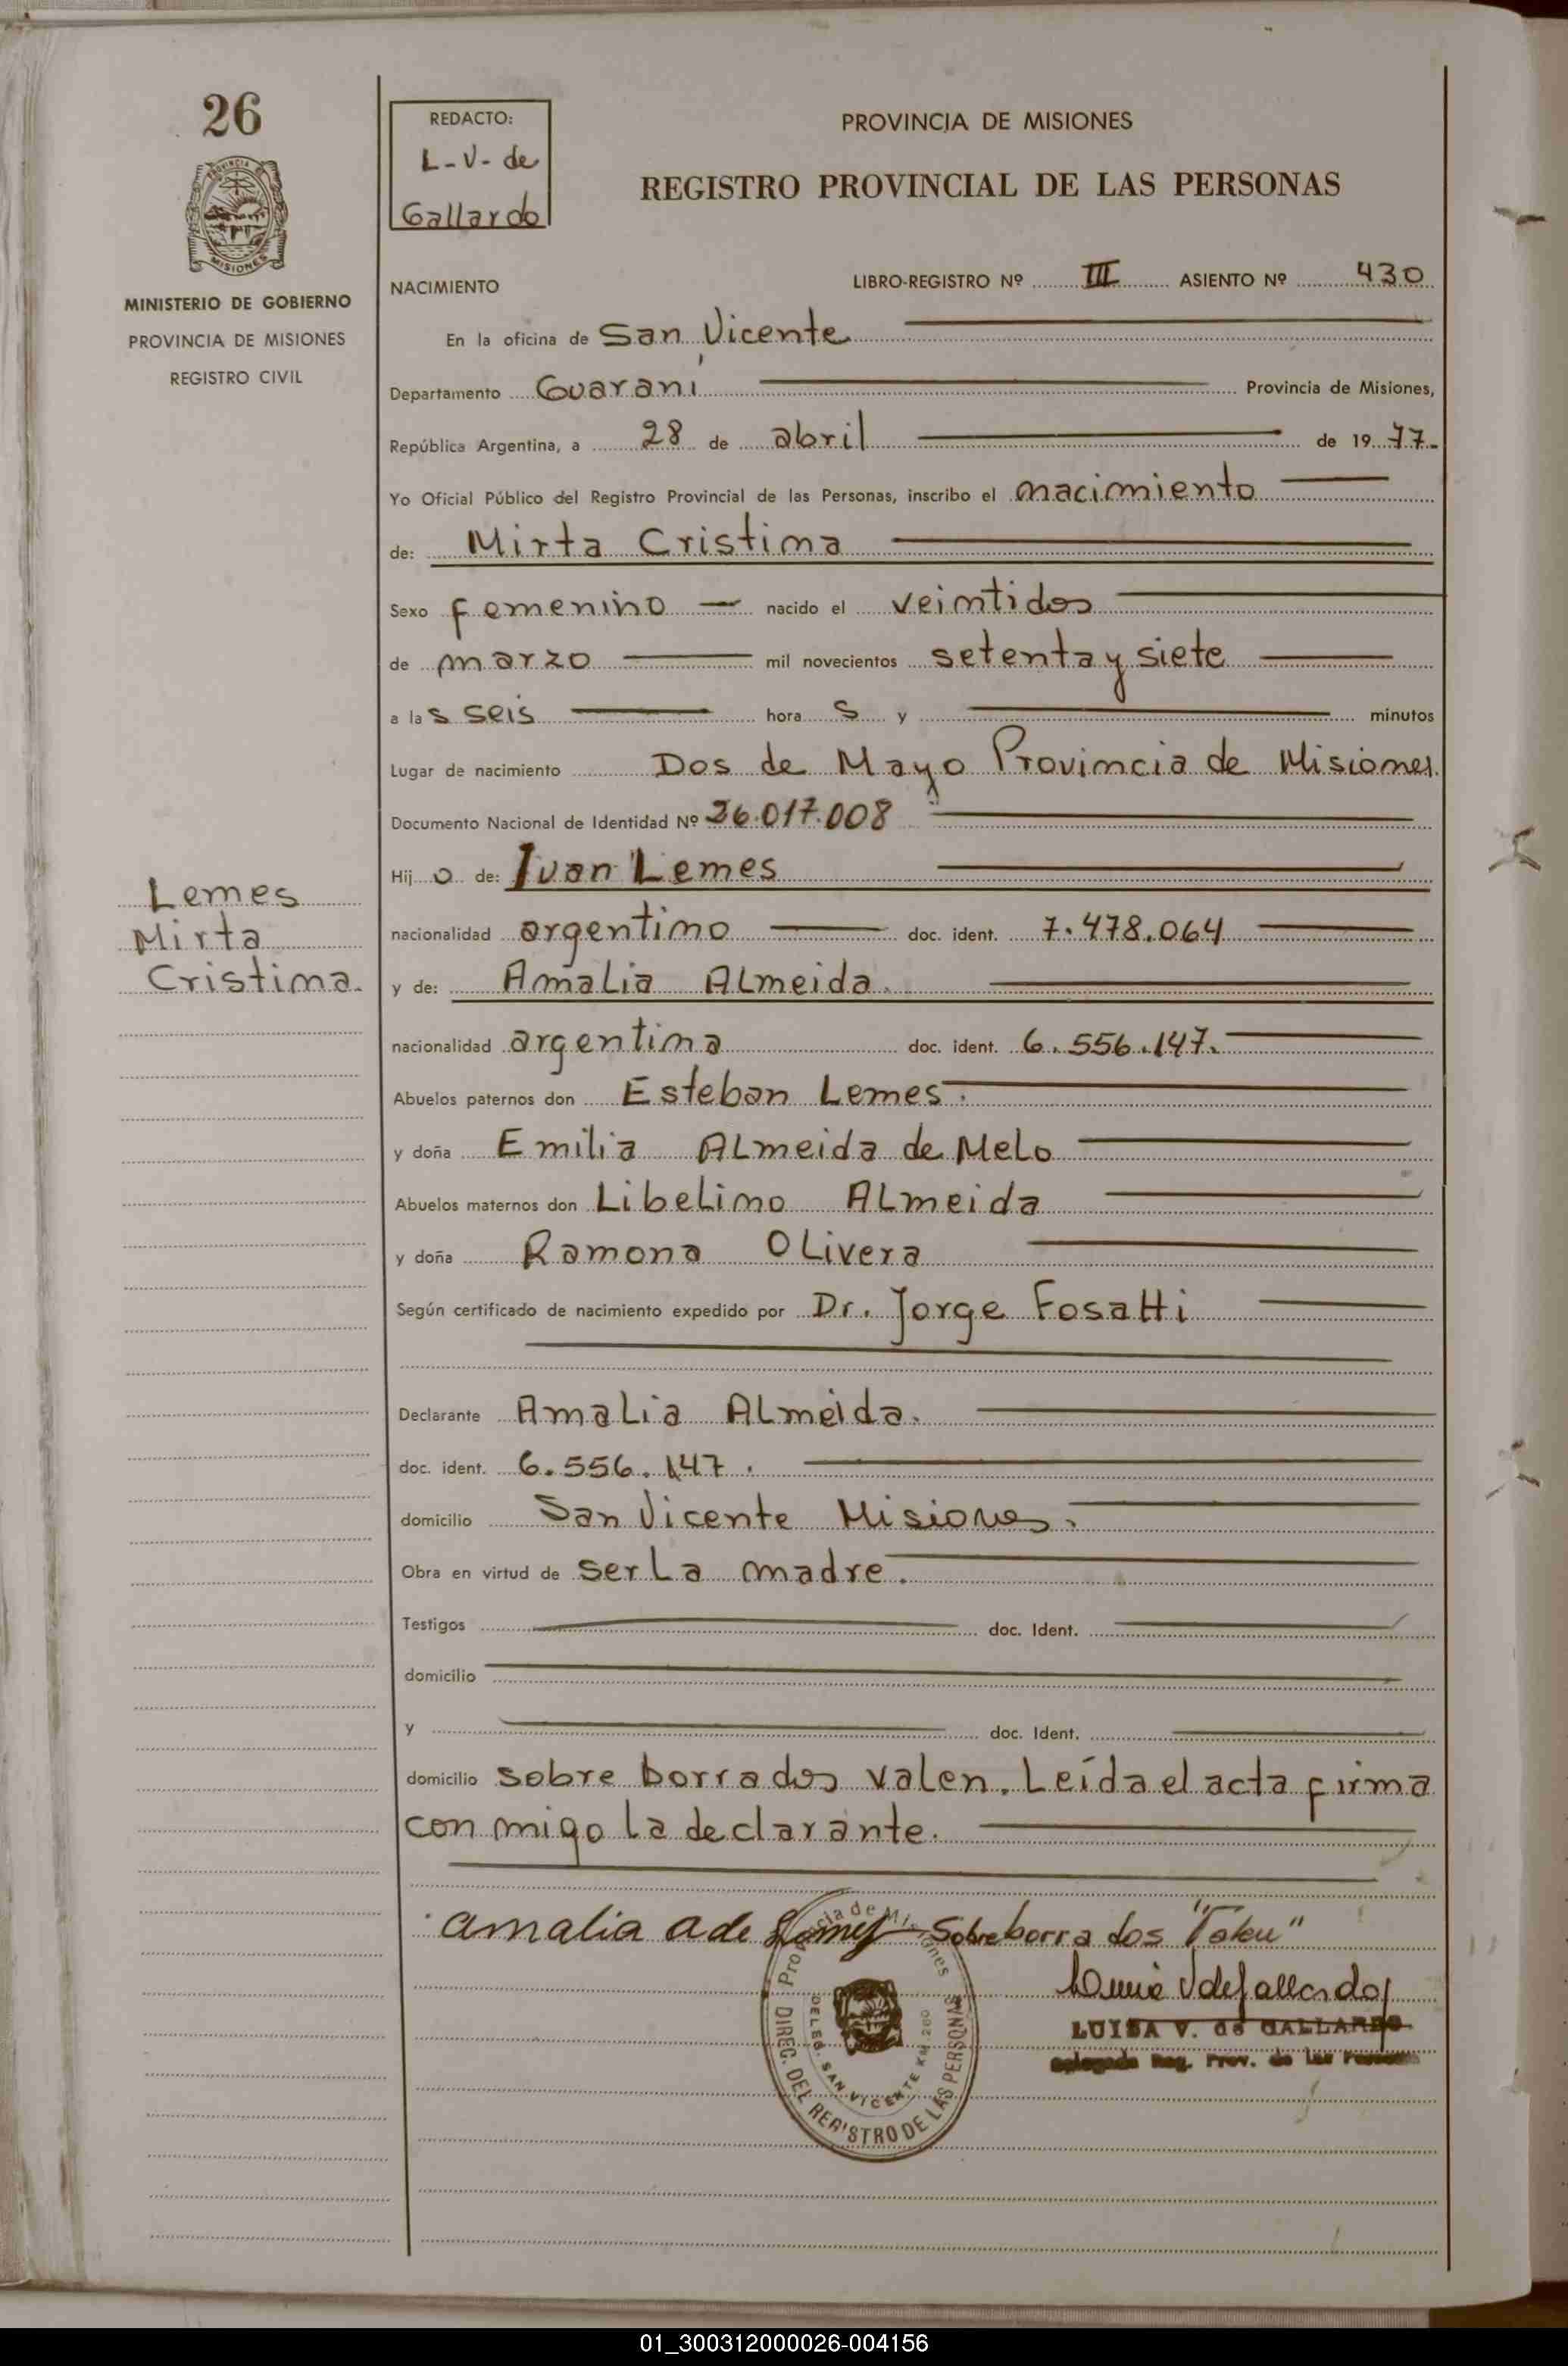 26
REDACTO:
L-V- de
Gallardo
PROVINCIA DE MISIONES
REGISTRO PROVINCIAL DE LAS PERSONAS
PROVINCIA
MISIONES
MINISTERIO DE GOBIERNO
PROVINCIA DE MISIONES
REGISTRO CIVIL
NACIMIENTO LIBRO-REGISTRO Nº III ASIENTO Nº 430
En la oficina de San Vicente
Departamento Guaraní Provincia de Misiones,
República Argentina, a 28 de abril de 1977.
Yo Oficial Público del Registro Provincial de las Personas, inscribo el nacimiento
de: Mirta Cristina
Sexo femenino nacido el veintidos
de marzo mil novecientos setenta y siete
a las seis horas y minutos
Lugar de nacimiento Dos de Mayo Provincia de Misiones.
Documento Nacional de Identidad Nº 26.017.008
Hijo de: Ivan Lemes
nacionalidad argentino doc. ident. 7.478.064
y de: Amalia Almeida.
nacionalidad argentina doc. ident. 6.556.147.
Abuelos paternos don Esteban Lemes.
y doña Emilia Almeida de Melo
Abuelos maternos don Libelino Almeida
y doña Ramona Olivera
Según certificado de nacimiento expedido por Dr. Jorge Fosatti
Declarante Amalia Almeida.
doc. ident. 6.556.147.
domicilio San Vicente Misiones.
Obra en virtud de ser la madre.
Testigos doc. Ident.
domicilio
y doc. Ident.
domicilio sobre borrados valen. Leída el acta firma
con migo la declarante.
Lemes
Mirta
Cristina.
amalia a de Lemes Sobre borrados
Provincia de Misiones
DIREC. DEL REGISTRO DE LAS PERSONAS
DELEG. SAN VICENTE KM. 260
LUISA V. de GALLARDO
Delegada Reg. Prov. de las Personas
01_300312000026-004156